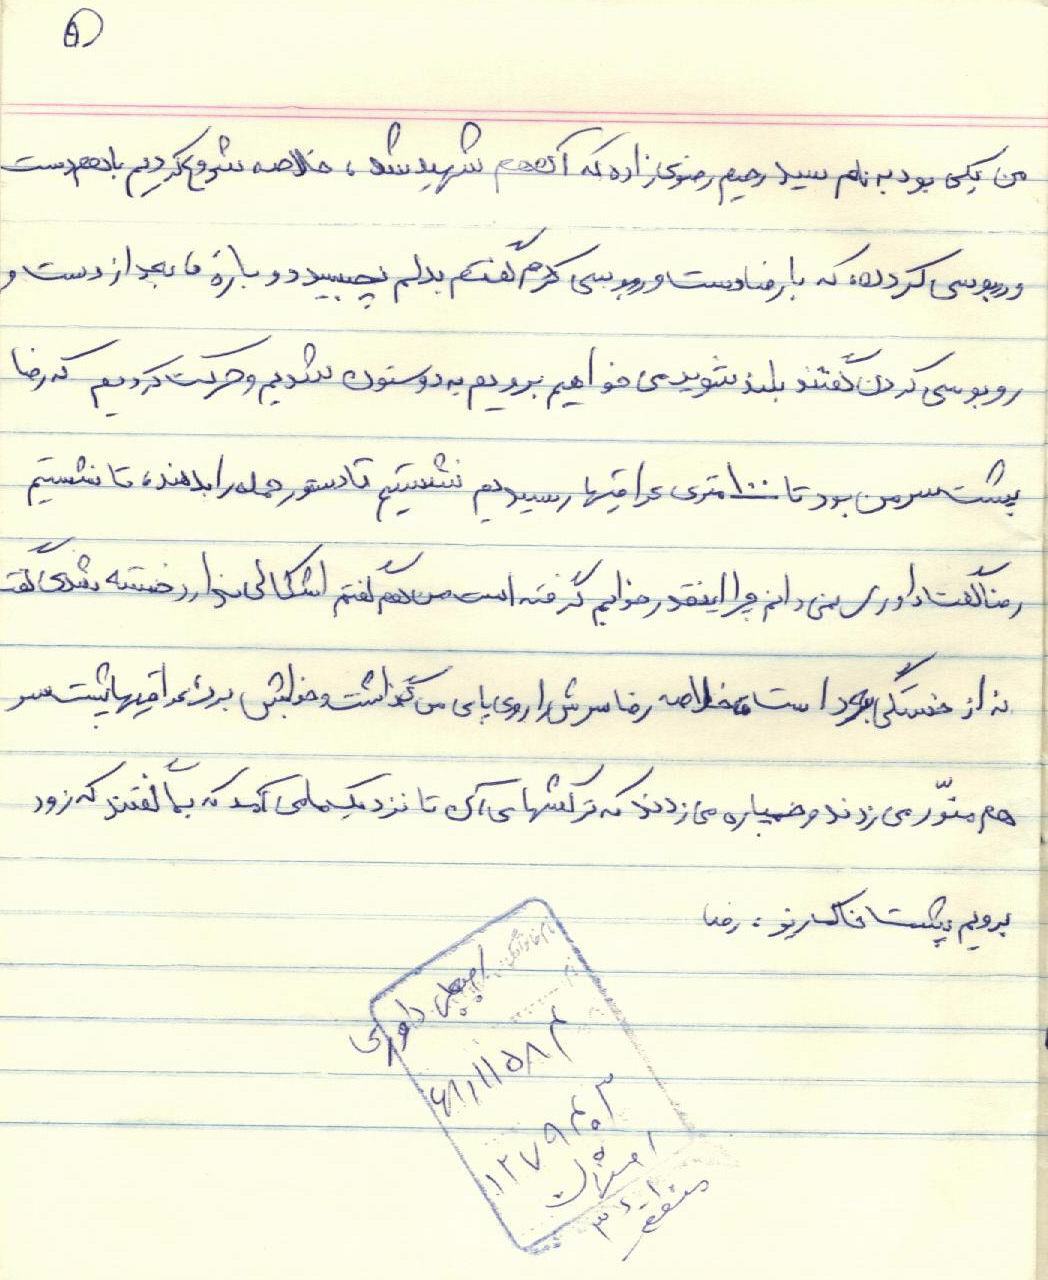 ۵
من یکی بود به نام سید رحیم رضوی زاده که آنهم شهید شد، خلاصه شروع کردیم باهم دست
وروبوسی کردن، که بارضا دست وروبوسی کردم گفتم بدلم نچسبید دوباره بعد از دست و
روبوسی کردن گفتند بلند شوید می خواهیم برویم به دوستون شدیم وحرکت کردیم که رضا
پشت سر من بود تا ۱۰۰ متری عراقیها رسیدیم نشستیم تا دستور حمله را بدهند، تا نشستیم
رضا گفت داوری نمی دانم چرا اینقدر خوابم گرفته است من هم گفتم اشکالی ندارد خسته شدی گفت
نه از خستگی است خلاصه رضا سرش را روی پای من گذاشت و خوابش برد، عراقیها پشت سر
هم منوّر می زدند و خمپاره می زدند که ترکشهای آن تا نزدیک ما می آمد که بما گفتند که زود
برویم پشت خاکریز، رضا
نام خانوادگی
داوری